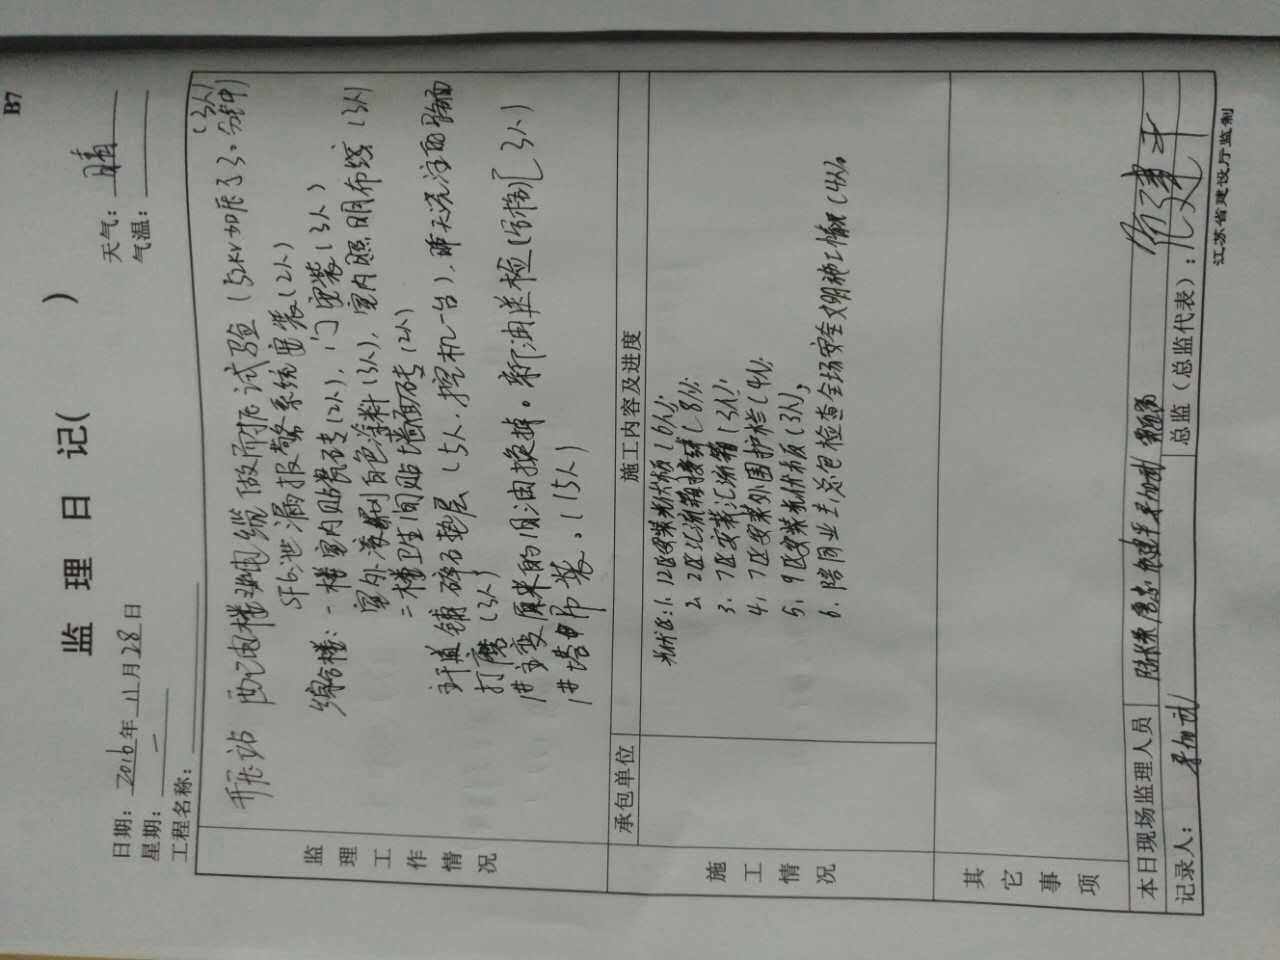 B7
监理日记( )
日期：2016年11月28日 天气：晴
星期：一 气温：
工程名称：
监理工作情况
开关站 西配电楼 电缆做耐压试验（52KV加压了30分钟）（3人）
SF6泄漏报警系统安装（2人）
综合楼：一楼室内贴瓷砖（2人），门安装（3人）
室外 刷白色涂料（3人），室内照明布线（3人）
二楼卫生间贴墙面砖（2人）
主干道铺碎石垫层（5人，挖机一台），昨天浇注面 路面
打磨（3人）
1#主变原来的旧油换掉。新油送检
1#塔 吊装。（5人）
施工情况
承包单位 施工内容及进度
1、12区安装光伏板（6人）；
2、2区汇流箱接线（8人）；
3、7区安装汇流箱（3人）；
4、7区安装外围护栏（4人）；
5、9区安装光伏板（3人）；
6、陪同业主、总包检查全场安全文明施工情况（4人）。
其它事项
本日现场监理人员
记录人： 总监（总监代表）：
江苏省建设厅监制